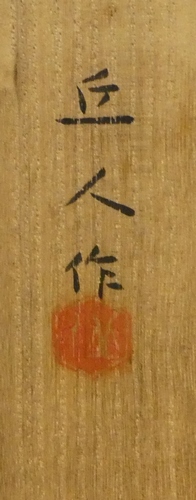 丘人作